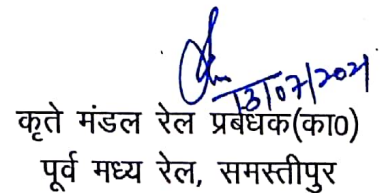 13/07/2021
कृते मंडल रेल प्रबंधक(का0)
पूर्व मध्य रेल, समस्तीपुर